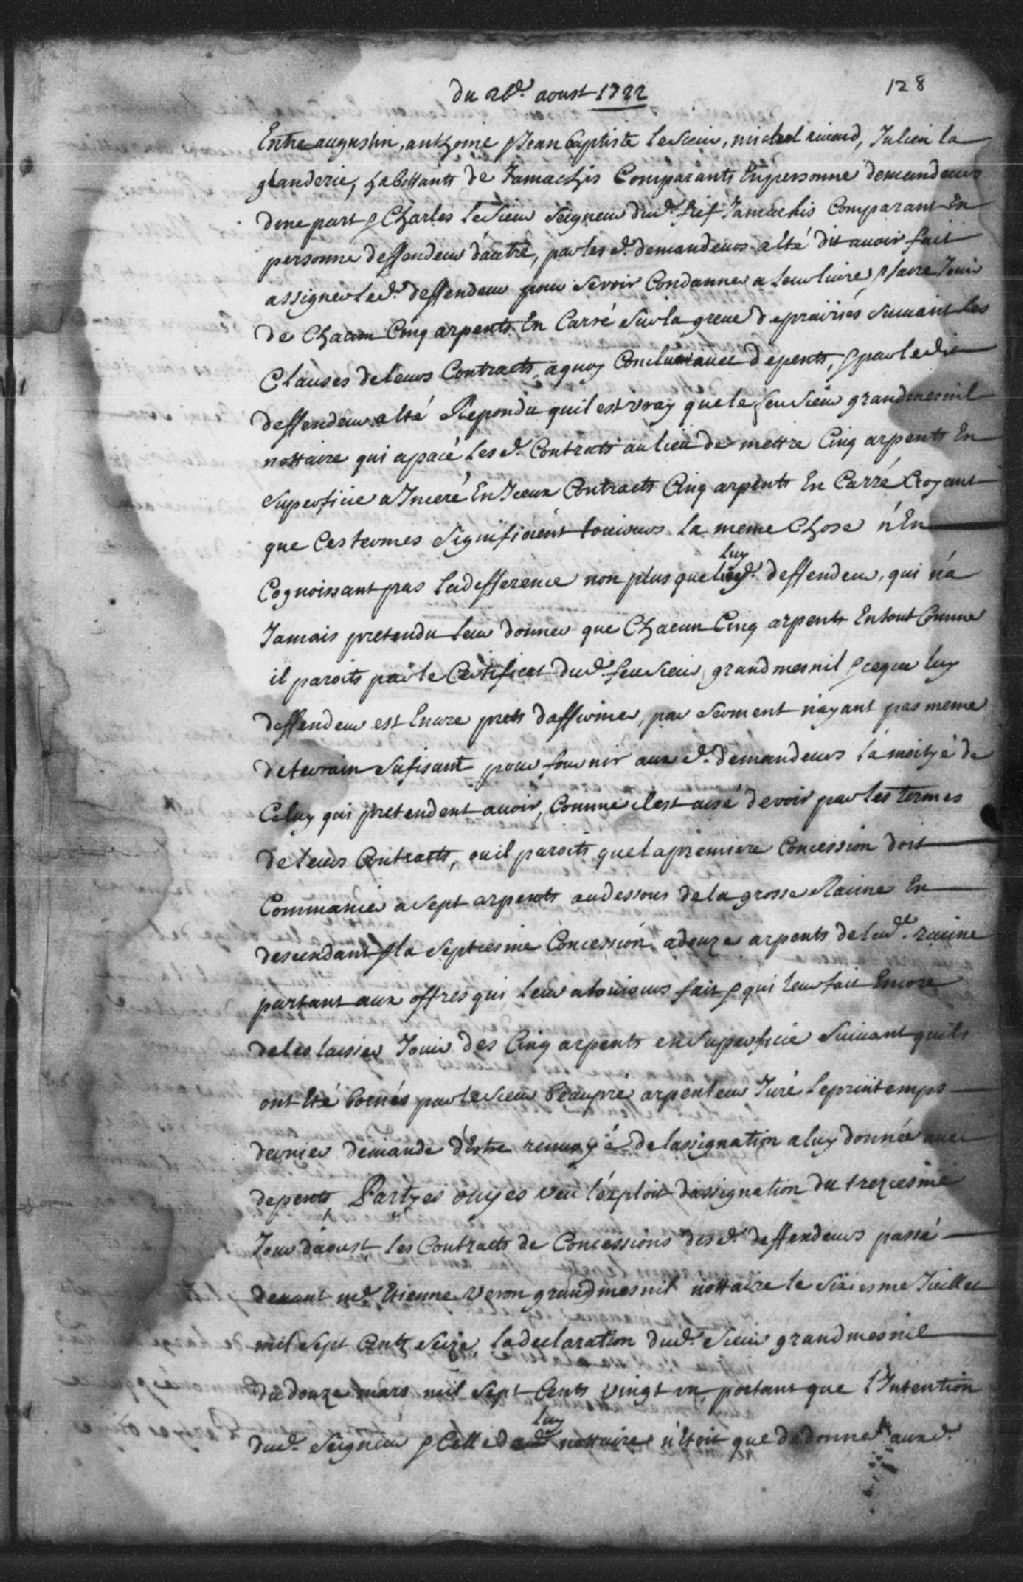 128
du 20e. aoust 1722
Entre augustin, anthoine & Jean baptiste Lesieur, michel rivard, Julien la
glanderie, habittants de Jamachis Comparants En personne demandeurs
dune part & Charles Lesieur Seigneur dud. fief Jamachis Comparant En
personne deffendeur dautre, par les d. demandeurs a esté dit avoir fait
assigner Led. deffendeur pour Se voir Condanner a Leur livrer & faire Jouir
de Chacun Cinq arpents En Carré Sur la greve de prairies Suivant les
Clauses de leurs Contracts, a quoy Concluent avec depents, & par le dit
deffendeur a esté Repondu quil est vray que le feu Sieur grandmesnil
nottaire qui a passé Les d. Contrats au lieu de mettre Cinq arpents En
Superficie a Inceré En Iceux Contracts Cinq arpents En Carré Croyant
que Ces termes Signifioient toujours la meme Chose n'En
Cognoissant pas la defference non plus que luy d. deffendeur, qui n'a
Jamais pretendu leur donner que Chacun Cinq arpents En tout Comme
il paroits par le Certificat dud. feu Sieur grandmesnil & ce que luy
deffendeur est Encore prets daffirmer, par Serment n'ayant pas meme
de terrain Sufisant pour fournir aux d. demandeurs la moityé de
Celuy qui pretendent avoir, Comme il est aisé de voir par les termes
de leurs Contracts, ou il paroits que la premiere Concession doit
Commancer a Sept arpents au dessous de la grosse Racine En
descendant & la Septiesme Concession a douze arpents de lad. racine
partant aux offres qui leur a toujours fait & qui leur fait Encore
de les laisser Jouir des Cinq arpents en Superficie Suivant quils
ont Eté bornés par le Sieur beaupré arpenteur Juré Le printemps
dernier demande d'Estre renvoyé de lassignation a luy donnée avec
depents, Partyes ouyes veu l'exploit dassignation du treziesme
Jour daoust Les Contracts de Concessions des d. deffendeurs passé
devant me. Etienne veron grandmesnil nottaire le Sixiesme Juillet
mil Sept Cents Seize, la declaration dud. Sieur grandmesnil
du douze mars mil Sept Cents vingt un, portant que l'Intention
dud. Seigneur & Celle de luy nottaire n'étoit que de donner aux d.